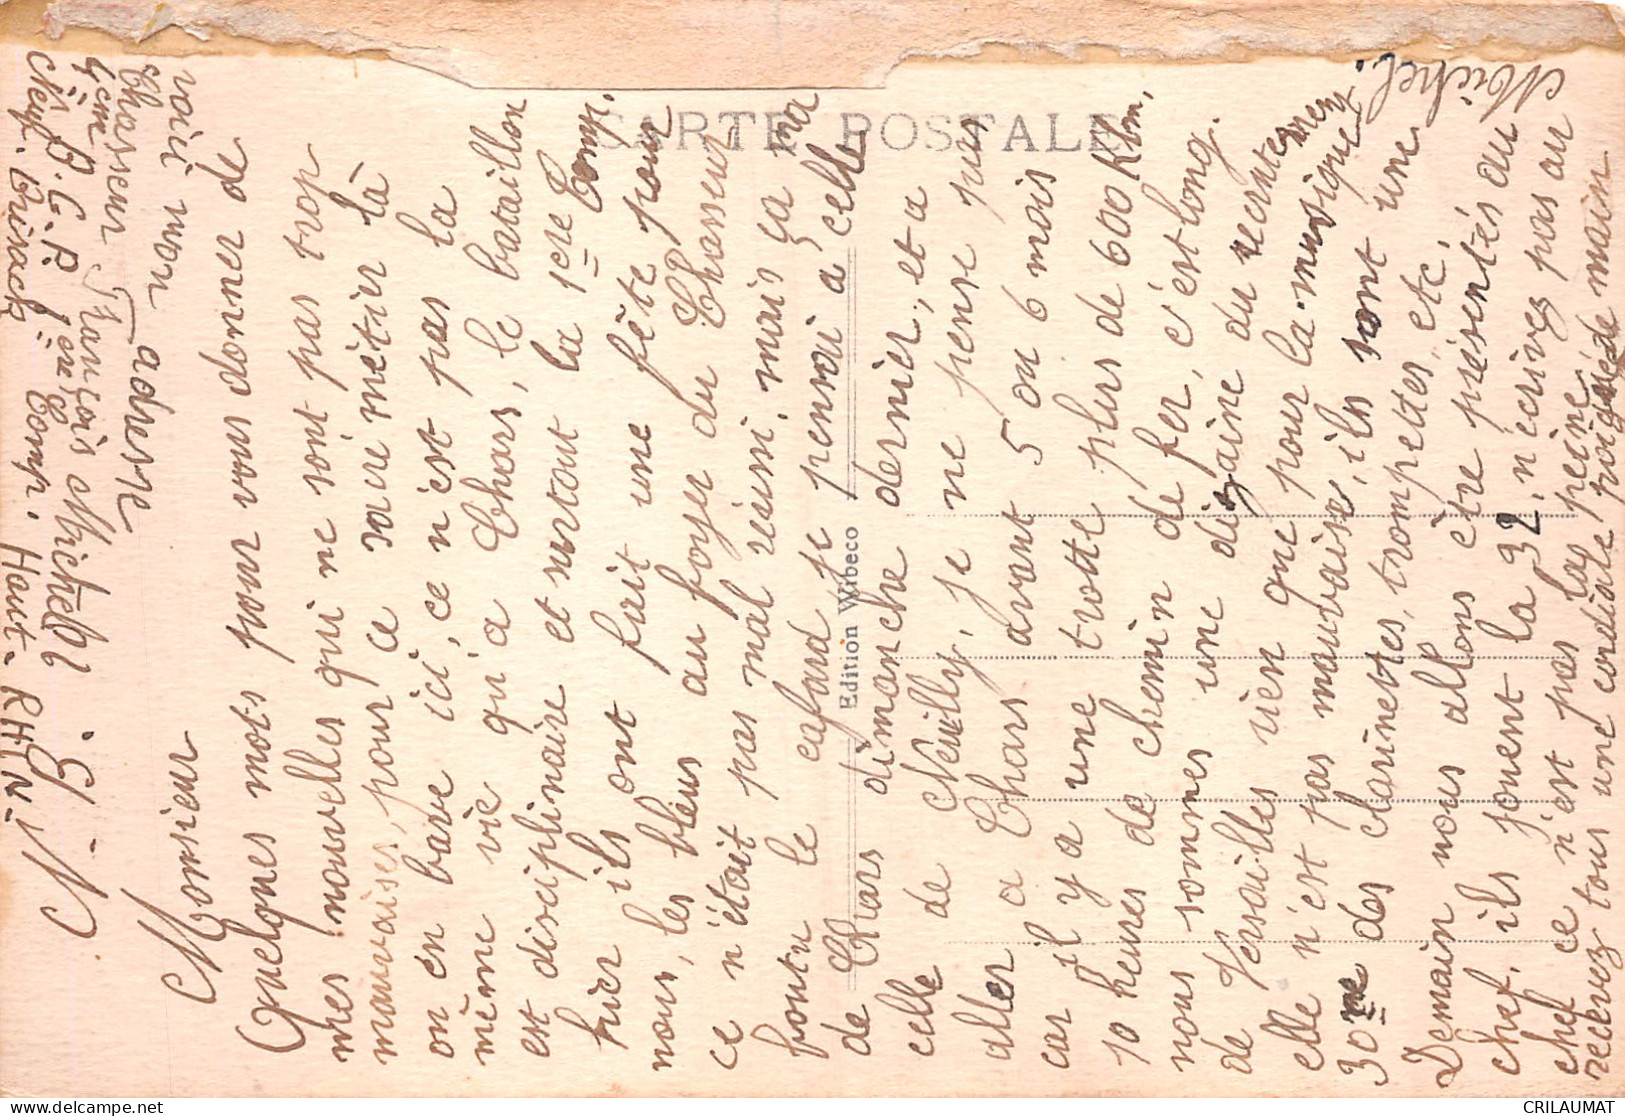 voici mon adresse
Chasseur François Michel
4eme B.C.P. 1ere Comp.
Neuf-Brisach Haut-RHIN
Monsieur
Quelques mots pour vous donner de
mes nouvelles qui ne sont pas trop
mauvaises, pour ce sacré métier là
on en bave ici, ce n'est pas la
même vie qu'a Chars, le bataillon
est disciplinaire et surtout la 1ere Comp.
hier ils ont fait une fête pour
nous, les bleus au foyer du Chasseur
ce n'était pas mal réussi, mais ça ma
foutu le cafard je pensai à celle
de Chars dimanche dernier, et a
celle de Neuilly, je ne pense pas
aller a Chars avant 5 ou 6 mois
car il y a une trotte plus de 600 Klm,
10 heures de chemin de fer, c'est long.
nous sommes une dizaine du recrutement
de Versailles rien que pour la musique,
elle n'est pas mauvaise, ils sont une
30ne des clarinettes, trompettes, etc,
Demain nous allons être présentés au
chef, ils jouent la 32, n'écrivez pas au
chef ce n'est pas la peine,
recevez tous une cordiale poignée de main
Michel.
CARTE POSTALE
Edition Wibeco
CRILAUMAT